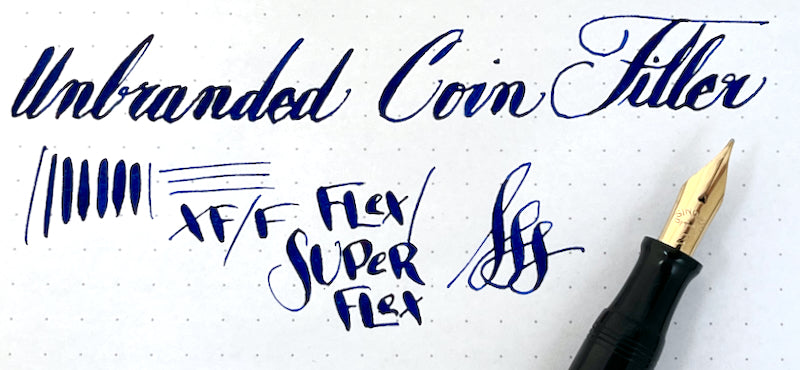 Unbranded Coin Filler
XF/F FLex/
SUPeR
FLex